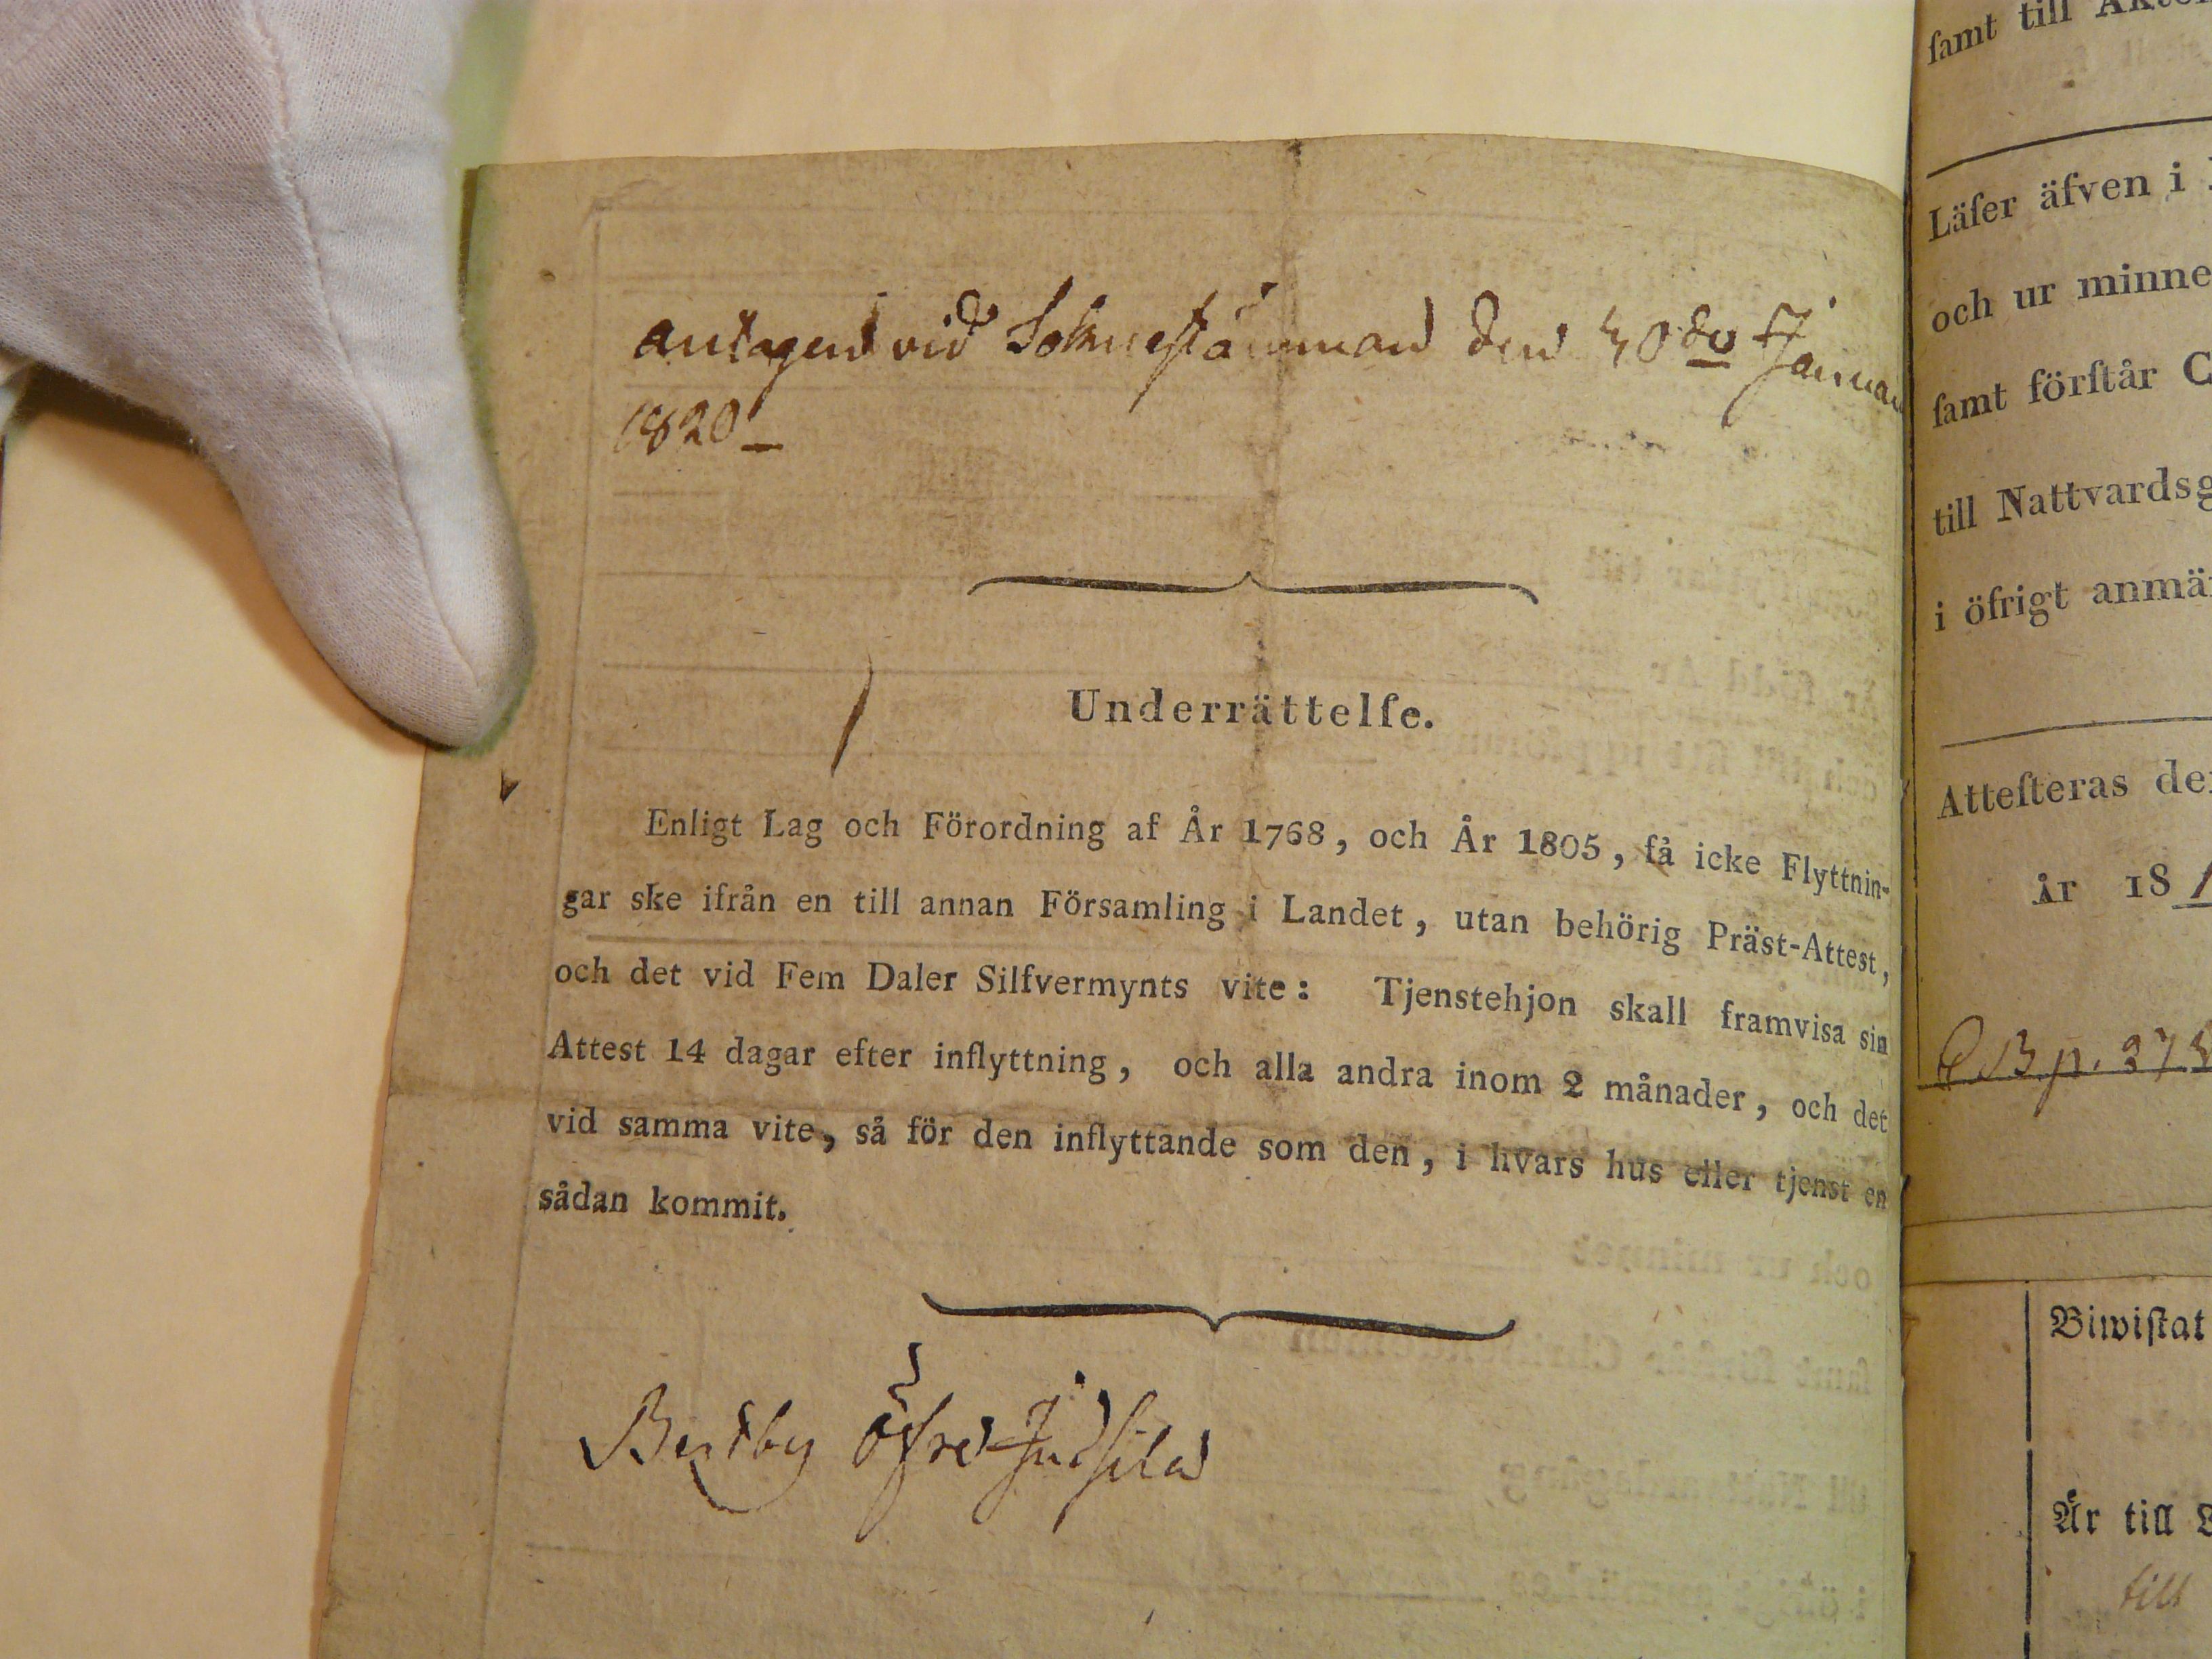 antagen vid Soknestämman den 30de Januar
1820
Underrättelſe.
Enligt Lag och Förordning af År 1768, och År 1805, få icke Flyttnin-
gar ske ifrån en till annan Församling i Landet, utan behörig Präst-Attest,
och det vid Fem Daler Silfvermynts vite: Tjenstehjon skall framvisa sin
Attest 14 dagar efter inflyttning, och alla andra inom 2 månader, och det
vid samma vite, så för den inflyttande som den, i hvars hus eller tjenst en
sådan kommit.
Bertby Öfre
ſamt till
Läſer äfven i
och ur minne
ſamt förſtår C
till Nattvardsg
i öfrigt anmä
Atteſteras de
år 181
p. 275
Biwiſtat
Är till
till